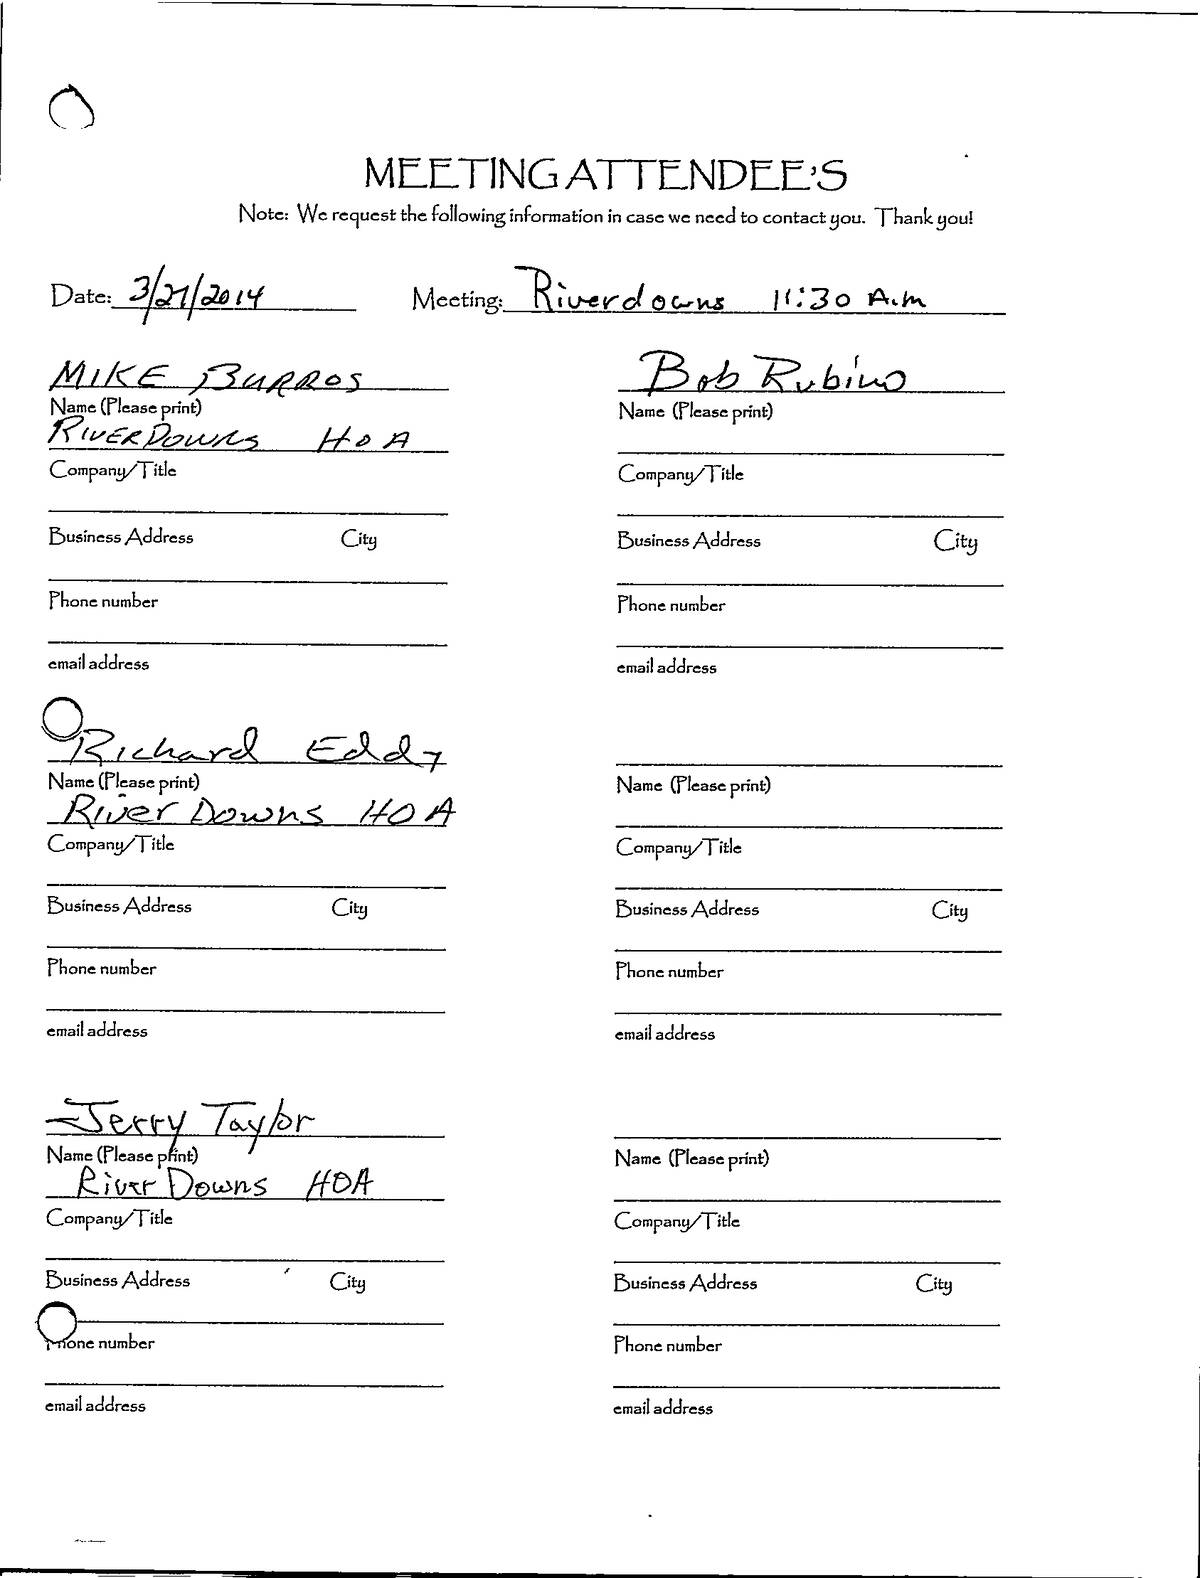 MEETING ATTENDEE'S
Note: We request the following information in case we need to contact you. Thank you!
Date: 3/27/2014 Meeting: Riverdowns 11:30 A.m
MIKE BURROS
Name (Please print)
RIVERDOWNS HOA
Company/Title
Business Address City
Phone number
email address
Bob Rubino
Name (Please print)
Company/Title
Business Address City
Phone number
email address
Richard Eddy
Name (Please print)
River Downs HOA
Company/Title
Business Address City
Phone number
email address
Name (Please print)
Company/Title
Business Address City
Phone number
email address
Jerry Taylor
Name (Please print)
River Downs HOA
Company/Title
Business Address City
Phone number
email address
Name (Please print)
Company/Title
Business Address City
Phone number
email address